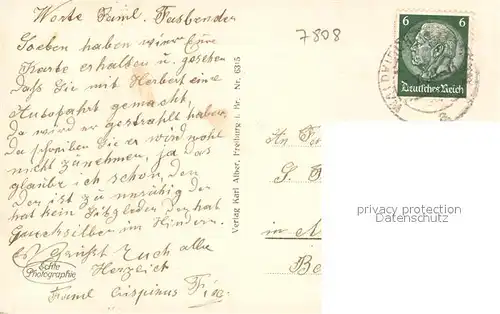 Werte Faml. Fasbender
Soeben haben wir Eure
Karte erhalten u. gesehen
Daß Sie mit Herbert eine
Autofahrt gemacht,
Da wird er gestrahlt haben
Da schreiben Sie er wird wohl
nicht zunehmen, ja das
glaube ich schon, den
Der ist zu unruhig der
hat kein Sitzfleder, der hat
Quecksilber im Hindern.
Es Grüßt Euch alle
Herzlich
Faml. Crispinus
Echte
Photographie
7808
Verlag Karl Alber, Freiburg i. Br. Nr. 6315
6 6
Deutsches Reich
An
in
privacy protection
Datenschutz